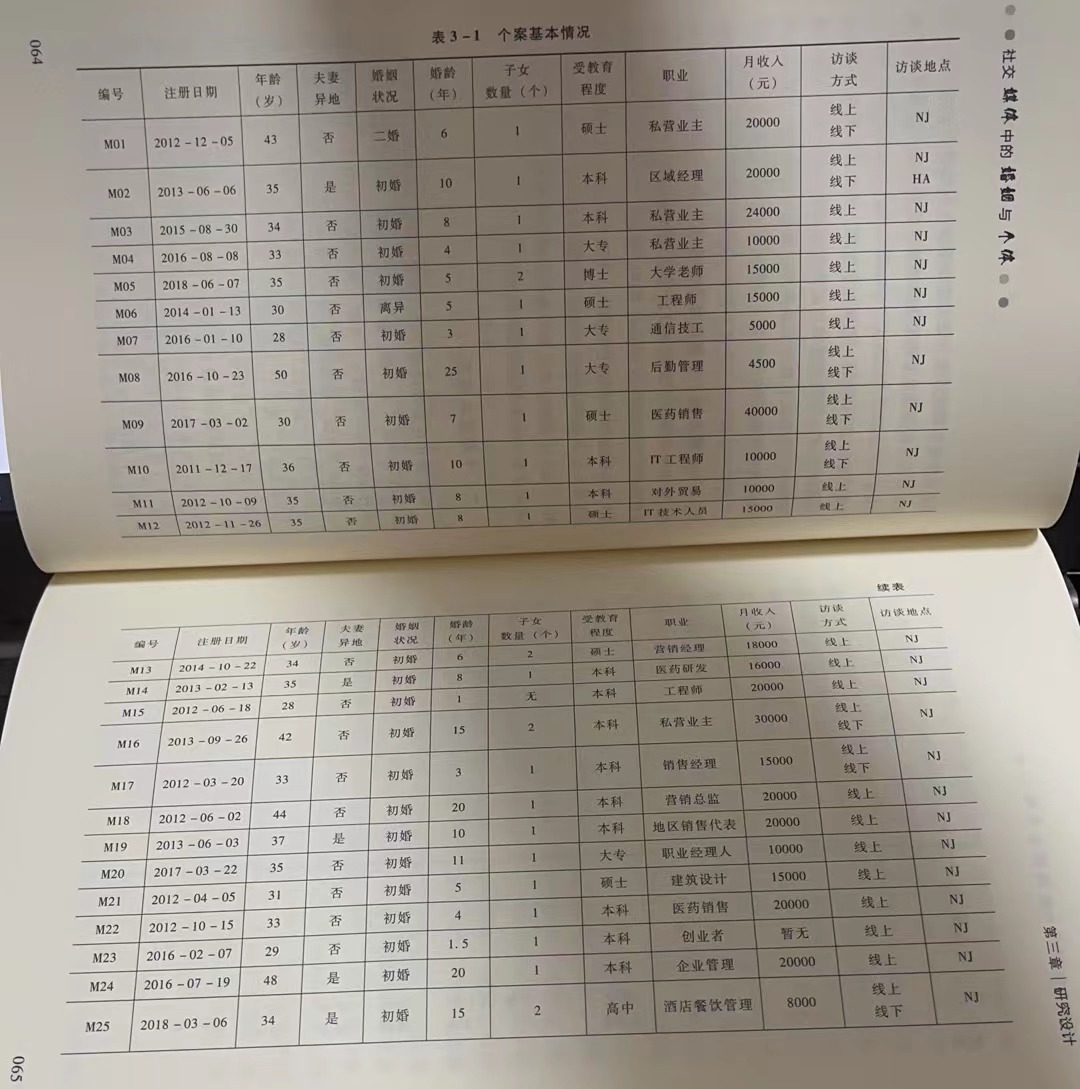 064
社交媒体中的婚姻与个体
表 3-1 个案基本情况
编号 注册日期 年龄（岁） 夫妻异地 婚姻状况 婚龄（年） 子女数量（个） 受教育程度 职业 月收入（元） 访谈方式 访谈地点
M01 2012-12-05 43 否 二婚 6 1 硕士 私营业主 20000 线上 线下 NJ
M02 2013-06-06 35 是 初婚 10 1 本科 区域经理 20000 线上 线下 NJ HA
M03 2015-08-30 34 否 初婚 8 1 本科 私营业主 24000 线上 NJ
M04 2016-08-08 33 否 初婚 4 1 大专 私营业主 10000 线上 NJ
M05 2018-06-07 35 否 初婚 5 2 博士 大学老师 15000 线上 NJ
M06 2014-01-13 30 否 离异 5 1 硕士 工程师 15000 线上 NJ
M07 2016-01-10 28 否 初婚 3 1 大专 通信技工 5000 线上 NJ
M08 2016-10-23 50 否 初婚 25 1 大专 后勤管理 4500 线上 线下 NJ
M09 2017-03-02 30 否 初婚 7 1 硕士 医药销售 40000 线上 线下 NJ
M10 2011-12-17 36 否 初婚 10 1 本科 IT工程师 10000 线上 线下 NJ
M11 2012-10-09 35 否 初婚 8 1 本科 对外贸易 10000 线上 NJ
M12 2012-11-26 35 否 初婚 8 1 硕士 IT技术人员 15000 线上 NJ
续表
编号 注册日期 年龄（岁） 夫妻异地 婚姻状况 婚龄（年） 子女数量（个） 受教育程度 职业 月收入（元） 访谈方式 访谈地点
M13 2014-10-22 34 否 初婚 6 2 硕士 营销经理 18000 线上 NJ
M14 2013-02-13 35 是 初婚 8 1 本科 医药研发 16000 线上 NJ
M15 2012-06-18 28 否 初婚 1 无 本科 工程师 20000 线上 NJ
M16 2013-09-26 42 否 初婚 15 2 本科 私营业主 30000 线上 线下 NJ
M17 2012-03-20 33 否 初婚 3 1 本科 销售经理 15000 线上 线下 NJ
M18 2012-06-02 44 否 初婚 20 1 本科 营销总监 20000 线上 NJ
M19 2013-06-03 37 是 初婚 10 1 本科 地区销售代表 20000 线上 NJ
M20 2017-03-22 35 否 初婚 11 1 大专 职业经理人 10000 线上 NJ
M21 2012-04-05 31 否 初婚 5 1 硕士 建筑设计 15000 线上 NJ
M22 2012-10-15 33 否 初婚 4 1 本科 医药销售 20000 线上 NJ
M23 2016-02-07 29 否 初婚 1.5 1 本科 创业者 暂无 线上 NJ
M24 2016-07-19 48 是 初婚 20 1 本科 企业管理 20000 线上 NJ
M25 2018-03-06 34 是 初婚 15 2 高中 酒店餐饮管理 8000 线上 线下 NJ
第三章 研究设计
065